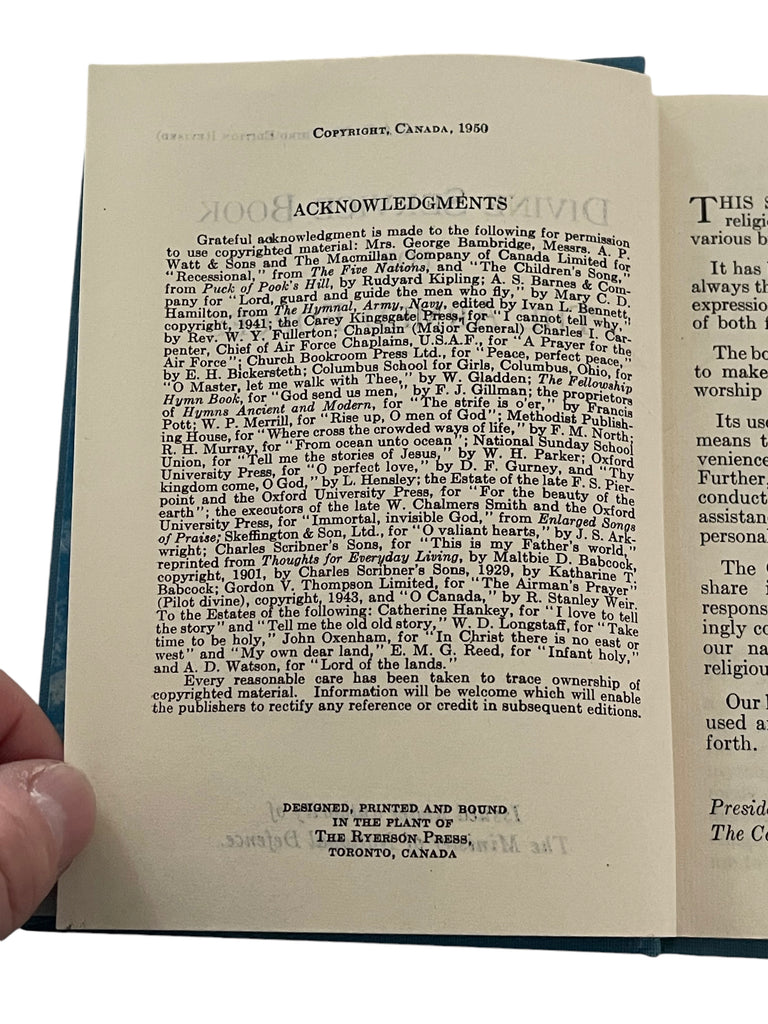 COPYRIGHT, CANADA, 1950
ACKNOWLEDGMENTS
Grateful acknowledgment is made to the following for permission
to use copyrighted material: Mrs. George Bambridge, Messrs. A. P.
Watt & Sons and The Macmillan Company of Canada Limited for
"Recessional," from The Five Nations, and "The Children's Song,"
from Puck of Pook's Hill, by Rudyard Kipling; A. S. Barnes & Com-
pany for "Lord, guard and guide the men who fly," by Mary C. D.
Hamilton, from The Hymnal, Army, Navy, edited by Ivan L. Bennett,
copyright, 1941; the Carey Kingsgate Press, for "I cannot tell why,"
by Rev. W. Y. Fullerton; Chaplain (Major General) Charles I. Car-
penter, Chief of Air Force Chaplains, U.S.A.F., for "A Prayer for the
Air Force"; Church Bookroom Press Ltd., for "Peace, perfect peace,"
by E. H. Bickersteth; Columbus School for Girls, Columbus, Ohio, for
"O Master, let me walk with Thee," by W. Gladden; The Fellowship
Hymn Book, for "God send us men," by F. J. Gillman; the proprietors
of Hymns Ancient and Modern, for "The strife is o'er," by Francis
Pott; W. P. Merrill, for "Rise up, O men of God"; Methodist Publish-
ing House, for "Where cross the crowded ways of life," by F. M. North;
R. H. Murray, for "From ocean unto ocean"; National Sunday School
Union, for "Tell me the stories of Jesus," by W. H. Parker; Oxford
University Press, for "O perfect love," by D. F. Gurney, and "Thy
kingdom come, O God," by L. Hensley; the Estate of the late F. S. Pier-
point and the Oxford University Press, for "For the beauty of the
earth"; the executors of the late W. Chalmers Smith and the Oxford
University Press, for "Immortal, invisible God," from Enlarged Songs
of Praise; Skeffington & Son, Ltd., for "O valiant hearts," by J. S. Ark-
wright; Charles Scribner's Sons, for "This is my Father's world,"
reprinted from Thoughts for Everyday Living, by Maltbie D. Babcock,
copyright, 1901, by Charles Scribner's Sons, 1929, by Katharine T.
Babcock; Gordon V. Thompson Limited, for "The Airman's Prayer"
(Pilot divine), copyright, 1943, and "O Canada," by R. Stanley Weir.
To the Estates of the following: Catherine Hankey, for "I love to tell
the story" and "Tell me the old old story," W. D. Longstaff, for "Take
time to be holy," John Oxenham, for "In Christ there is no east or
west" and "My own dear land," E. M. G. Reed, for "Infant holy,"
and A. D. Watson, for "Lord of the lands."
Every reasonable care has been taken to trace ownership of
copyrighted material. Information will be welcome which will enable
the publishers to rectify any reference or credit in subsequent editions.
DESIGNED, PRINTED AND BOUND
IN THE PLANT OF
THE RYERSON PRESS,
TORONTO, CANADA
THIS
religio
various b
It has
always th
expression
of both f
The bo
to make
worship
Its use
means t
venience
Further,
conduct
assistan
personal
The
share i
respons
ingly co
our na
religiou
Our
used a
forth.
Presid
The Ce